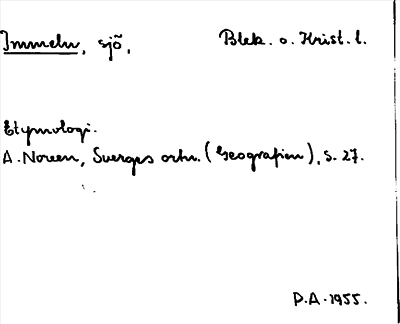 Immeln, sjö, Blek. o. Krist. l.
Etymologi.
A. Noreen, Sverges ortn. (Geografien), s. 27.
P.A. 1955.